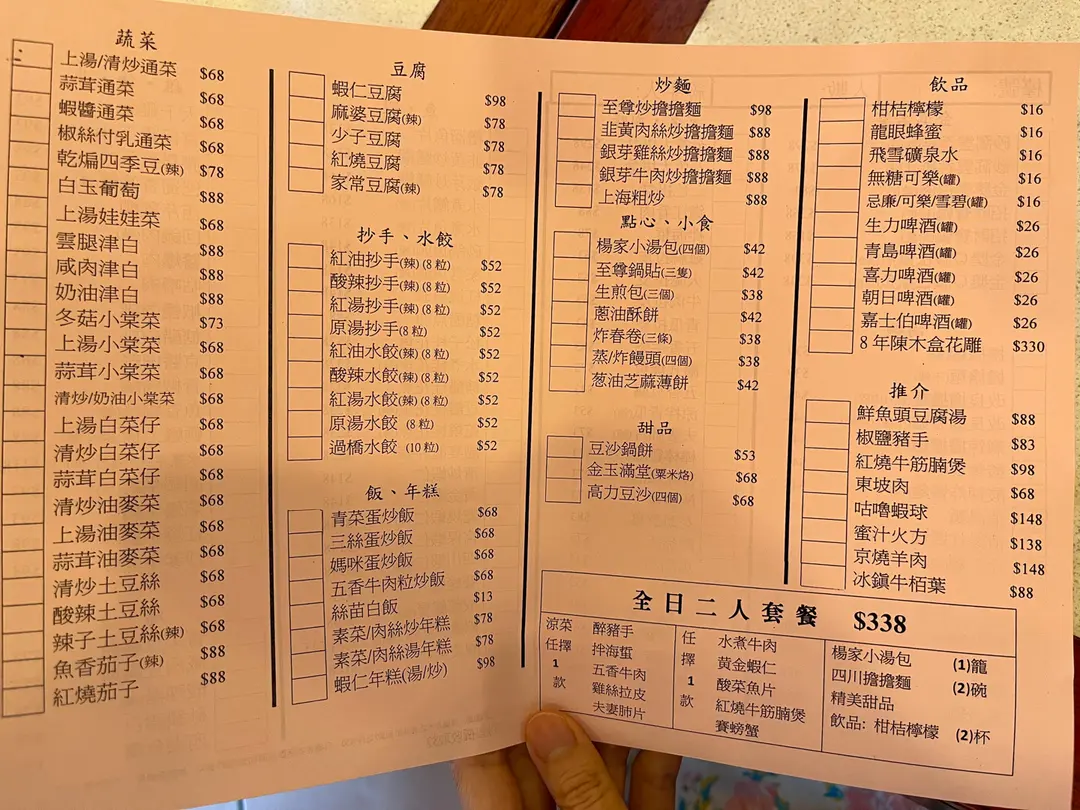 蔬菜
上湯/清炒通菜 $68
蒜茸通菜 $68
蝦醬通菜 $68
椒絲付乳通菜 $68
乾煸四季豆(辣) $78
白玉葡萄 $88
上湯娃娃菜 $68
雲腿津白 $88
咸肉津白 $88
奶油津白 $88
冬菇小棠菜 $73
上湯小棠菜 $68
蒜茸小棠菜 $68
清炒/奶油小棠菜 $68
上湯白菜仔 $68
清炒白菜仔 $68
蒜茸白菜仔 $68
清炒油麥菜 $68
上湯油麥菜 $68
蒜茸油麥菜 $68
清炒土豆絲 $68
酸辣土豆絲 $68
辣子土豆絲(辣) $68
魚香茄子(辣) $88
紅燒茄子 $88
豆腐
蝦仁豆腐 $98
麻婆豆腐(辣) $78
少子豆腐 $78
紅燒豆腐 $78
家常豆腐(辣) $78
抄手、水餃
紅油抄手(辣) (8 粒) $52
酸辣抄手(辣) (8 粒) $52
紅湯抄手(辣) (8 粒) $52
原湯抄手(8 粒) $52
紅油水餃(辣) (8 粒) $52
酸辣水餃(辣) (8 粒) $52
紅湯水餃(辣) (8 粒) $52
原湯水餃 (8 粒) $52
過橋水餃 (10 粒) $52
飯、年糕
青菜蛋炒飯 $68
三絲蛋炒飯 $68
媽咪蛋炒飯 $68
五香牛肉粒炒飯 $68
絲苗白飯 $13
素菜/肉絲炒年糕 $78
素菜/肉絲湯年糕 $78
蝦仁年糕(湯/炒) $98
炒麵
至尊炒擔擔麵 $98
韭黃肉絲炒擔擔麵 $88
銀芽雞絲炒擔擔麵 $88
銀芽牛肉炒擔擔麵 $88
上海粗炒 $88
點心、小食
楊家小湯包(四個) $42
至尊鍋貼(三隻) $42
生煎包(三個) $38
蔥油酥餅 $42
炸春卷(三條) $38
蒸/炸饅頭(四個) $38
葱油芝蔴薄餅 $42
甜品
豆沙鍋餅 $53
金玉滿堂(粟米烙) $68
高力豆沙(四個) $68
飲品
柑桔檸檬 $16
龍眼蜂蜜 $16
飛雪礦泉水 $16
無糖可樂(罐) $16
忌廉/可樂/雪碧(罐) $16
生力啤酒(罐) $26
青島啤酒(罐) $26
喜力啤酒(罐) $26
朝日啤酒(罐) $26
嘉士伯啤酒(罐) $26
8 年陳木盒花雕 $330
推介
鮮魚頭豆腐湯 $88
椒鹽豬手 $83
紅燒牛筋腩煲 $98
東坡肉 $68
咕嚕蝦球 $148
蜜汁火方 $138
京燒羊肉 $148
冰鎮牛栢葉 $88
全日二人套餐 $338
涼菜
任擇
1
款
醉豬手
拌海蜇
五香牛肉
雞絲拉皮
夫妻肺片
任
擇
1
款
水煮牛肉
黃金蝦仁
酸菜魚片
紅燒牛筋腩煲
賽螃蟹
楊家小湯包 (1)籠
四川擔擔麵 (2)碗
精美甜品
飲品: 柑桔檸檬 (2)杯